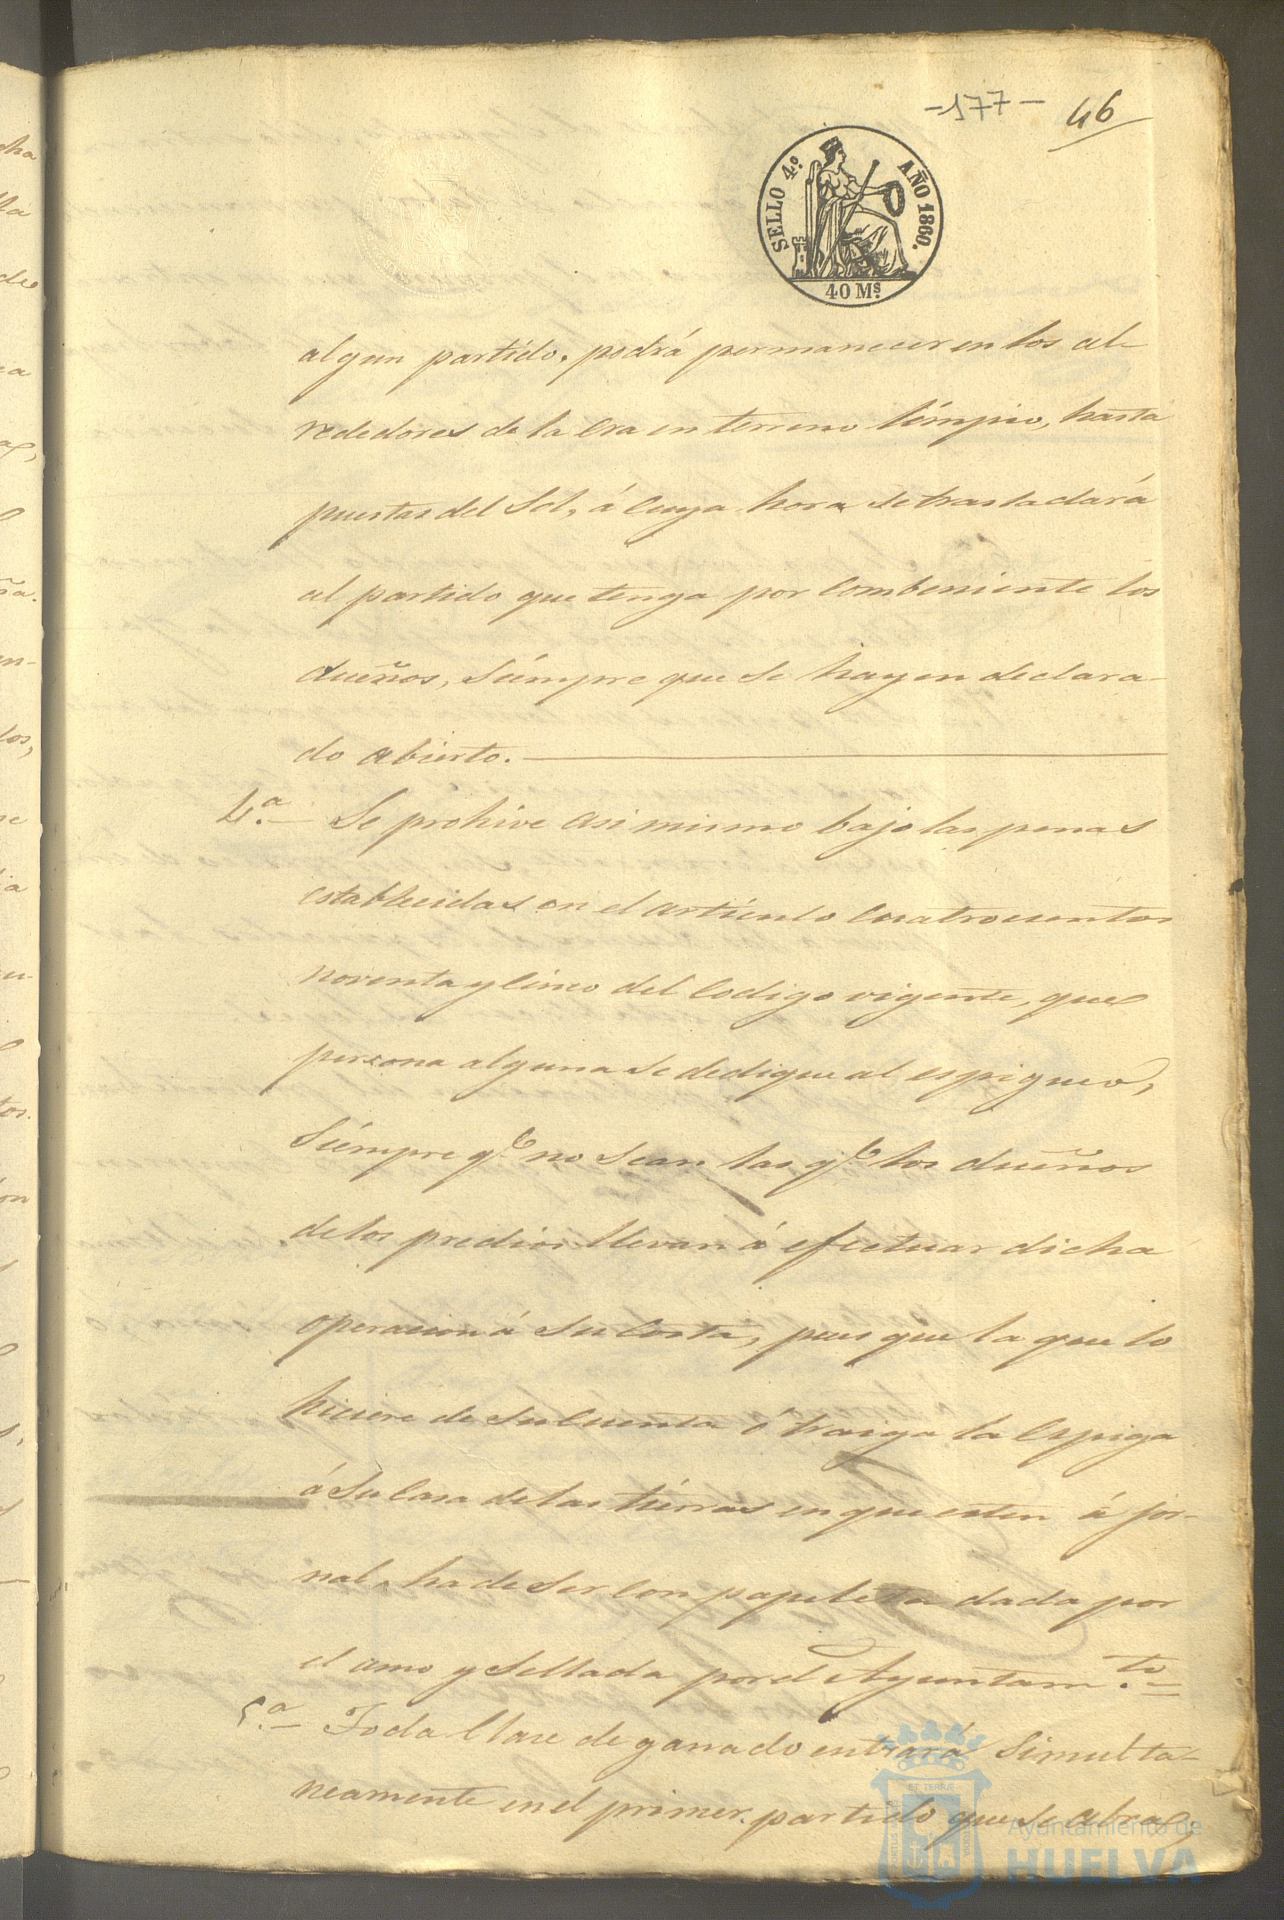 -177- 46
SELLO 4º AÑO 1860.
40 Mˢ
algun partido, podrá permanecer en los al-
rededores de la Era en terreno limpio, hasta
puestas del Sol, á cuya hora se trasladará
al partido que tenga por combeniente los
dueños, siempre que se hayan declara-
do abierto.
4.ª Se prohive asi mismo bajo las penas
establecidas en el artículo Cuatrocientos
noventa y cinco del Codigo vigente, que
persona alguna se dedique al espigueo,
Siempre qᵉ no sean las qᵉ los dueños
de los predios llevan á efectuar dicha
operacion á su costa, pues que la que lo
hiciere de su cuenta ó traiga la Espiga
á su casa de las tierras en que esten á jor-
nal, ha de ser con papeleta dada por
el amo y Sellada por el Ayuntam.ᵗᵒ
5.ª Toda Clase de ganado entrará Simulta-
neamente en el primer partido que se abra,
ET TERRÆ
Ayuntamiento de
HUELVA